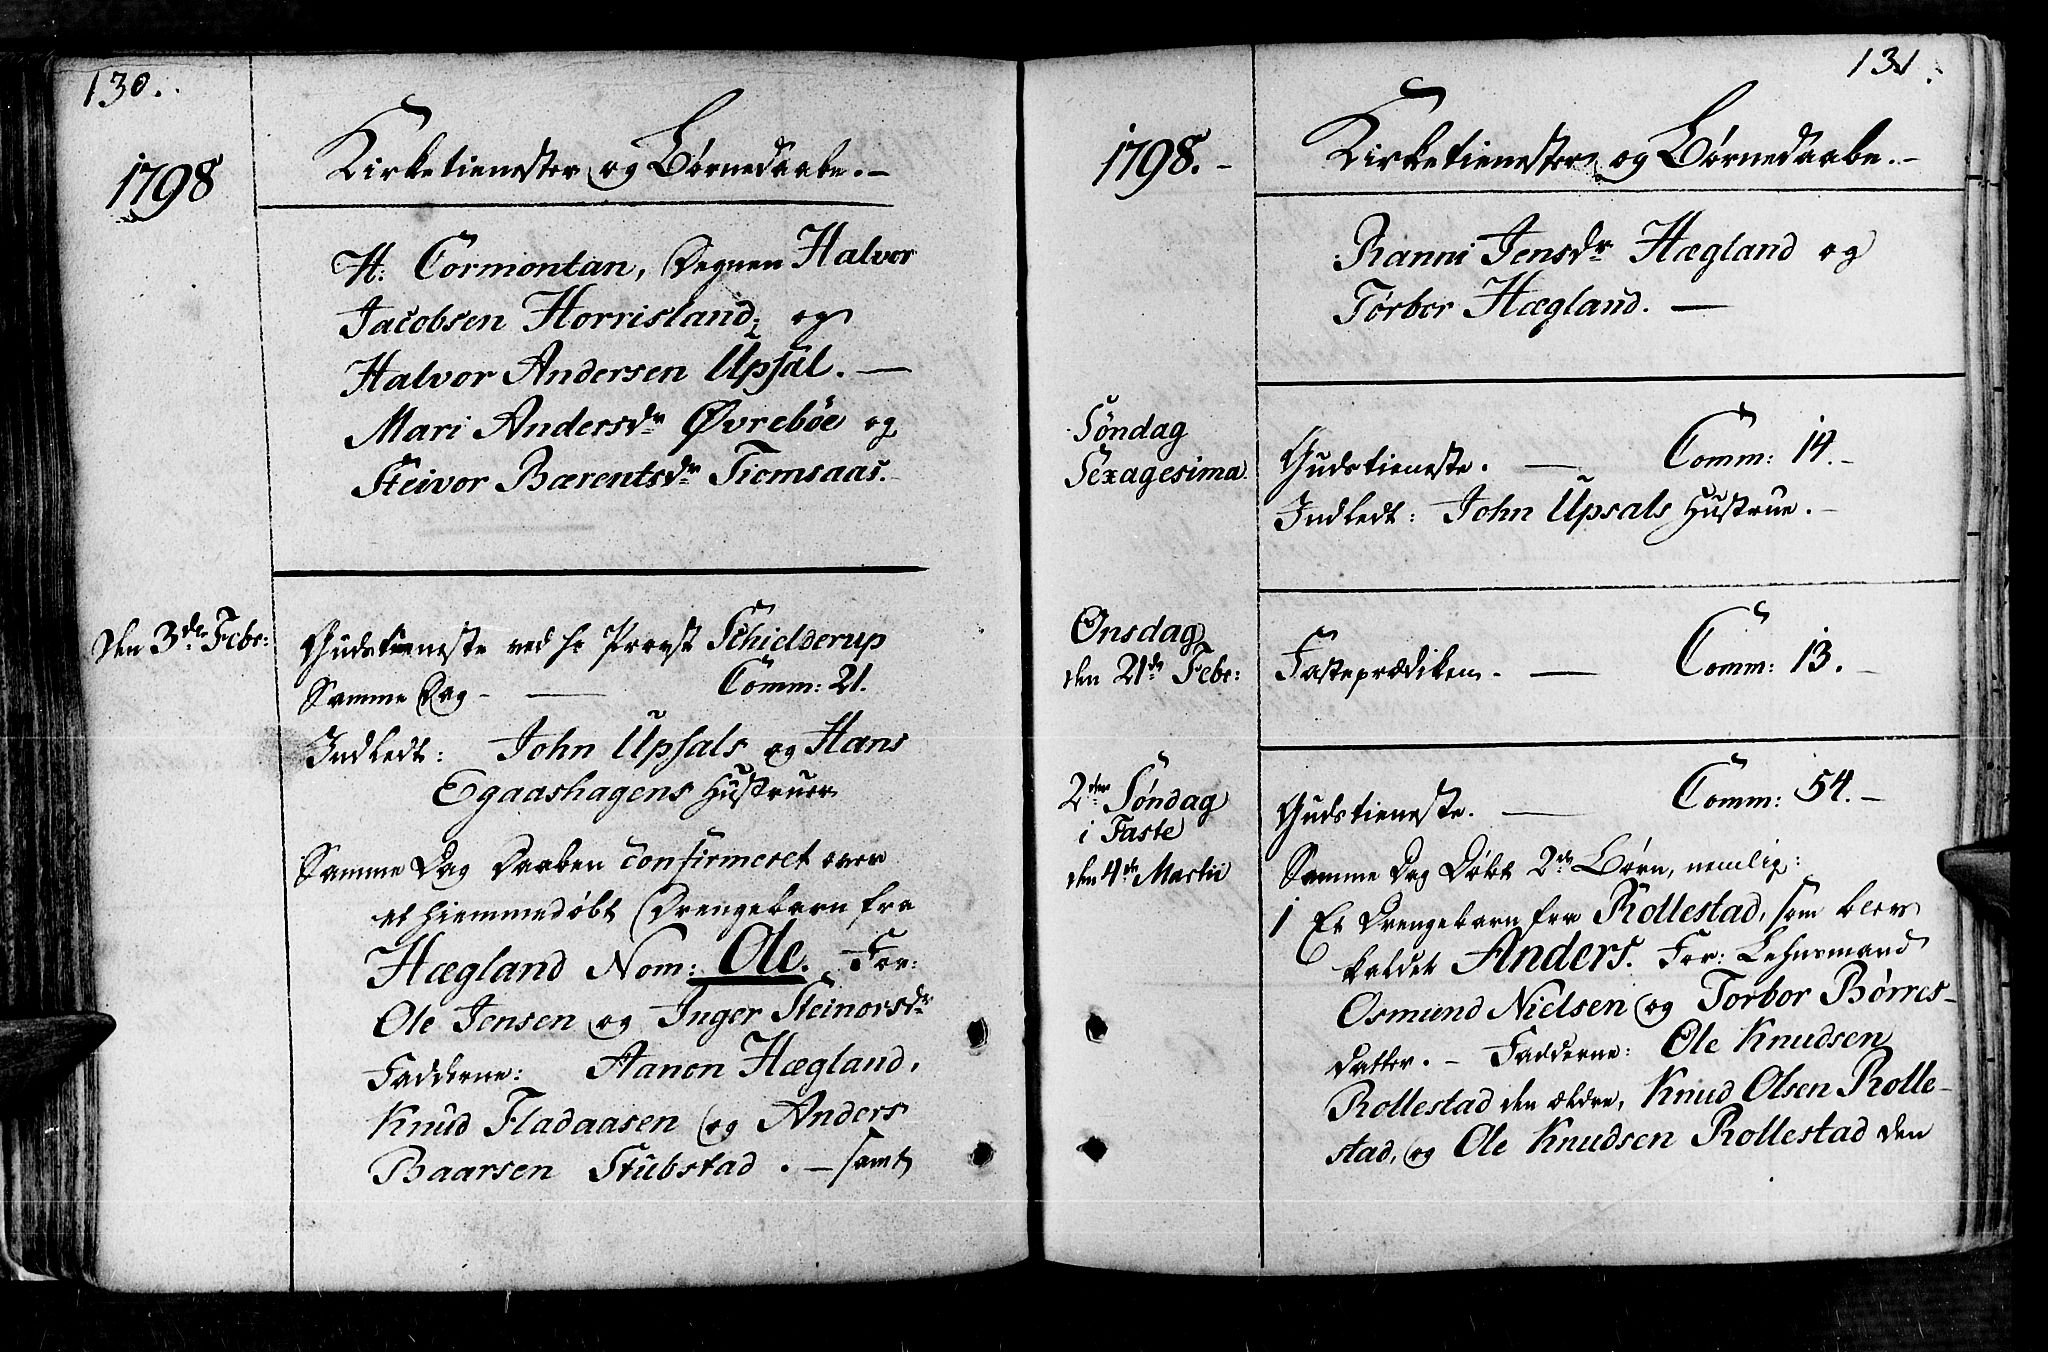 130.
1798
Kirketienester og Børnedaabe.-
H: Cormontan, Degnen Halvor
Jacobsen Horrisland; og
Halvor Andersen Upsal. —
Mari Andersdr Øvrebøe og
Steivor Bærentsdr Tiomsaas.-
Den 3de Febr:
Gudstieneste ved Hr Provst Schielderup
Samme Dag - — Comm: 21.
Indledt: John Upsals og Hans
Egaashagens Hustruer
Samme Dag Daaben confirmeret over
et hiemmedøbt Drengebarn fra
Hægland Nom: Ole. For:
Ole Jensen og Inger Steinorsdr
Fadderne: Aanon Hægland,
Knud Fladaasen og Anders
Baarsen Stubstad. — samt
131.
1798.-
Kirketienester og Børnedaabe.-
Ranni Jensdr Hægland og
Tørbor Hægland. —
Søndag
Sexagesima
Gudstieneste. — Comm: 14.-
Indledt: John Upsals Hustrue.-
Onsdag
den 21de Febr:
Fasteprædiken. — Comm: 13.-
2den Søndag
i Faste
den 4de Martii
Gudstieneste. — Comm: 54.-
Samme Dag Døbt 2de Børn, nemlig:
1 Et Drengebarn fra Rollestad, som blev
kaldet Anders. For: Lehnsmand
Osmund Nielsen og Torbor Børres-
datter. - Fadderne: Ole Knudsen
Rollestad den ældre, Knud Olsen Rolle-
stad, og Ole Knudsen Rollestad den